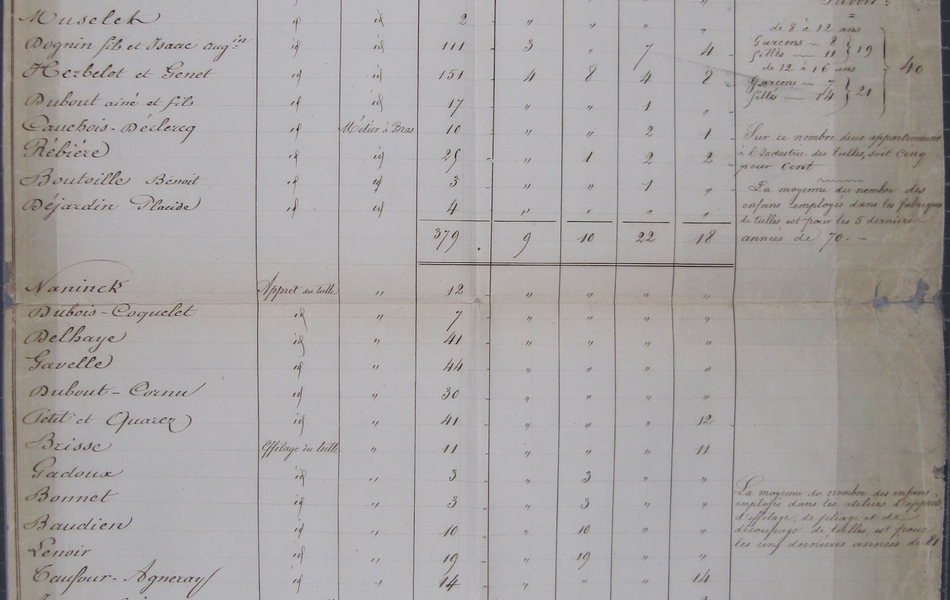 Savoir :
Muselek id id 2 " " " "
Dognin fils et Isaac aug.in id id 111 3 " 7 4
Herbelot et Genet id id 151 4 8 4 8
Dubout ainé et fils id id 17 " " 1 "
Cauchois-Déclercq id Métier à Bras 10 " " 2 1
Rébière id id 25 " 1 2 2
Boutoille Benoit id id 3 " " 1 "
Déjardin Placide id id 4 " " " "
379 9 10 22 18
de 8 à 12 ans
Garçons — 8
filles — 11 } 19
de 12 à 16 ans
Garçons — 7
filles — 14 } 21
40
Sur ce nombre deux appartiennent
à l'Industrie des tulles, soit Cinq
pour Cent
La moyenne du nombre des
enfans employés dans les fabriques
de tulles est pour les 5 dernières
années de 70. —
Naninck Appret du tulle " 12 " " " "
Dubois-Coquelet id " 7 " " " "
Delhaye id " 41 " " " "
Gavelle id " 44 " " " "
Dubout-Cornu id " 30 " " " "
Petit et Quarez id " 41 " " " 12
Brisse Effilage du tulle " 11 " " " 11
Gadoux id " 3 " 3 " "
Bonnet id " 3 " 3 " "
Baudien id " 10 " 10 " "
Lenoir id " 19 " 19 " "
Caufour-Agneray id " 14 " " " 14
La moyenne du nombre des enfans
employés dans les ateliers d'apprêt,
d'effilage, de pliage et de
découpage de tulles est pour
les cinq dernières années de 81